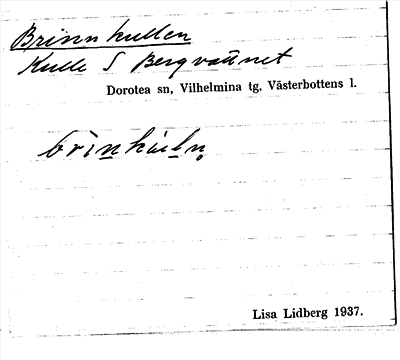 Brinnkullen
Kulle S Bergvattnet
Dorotea sn, Vilhelmina tg, Västerbottens l.
Lisa Lidberg 1937.